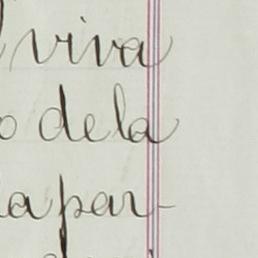 viva
o de la
la par-